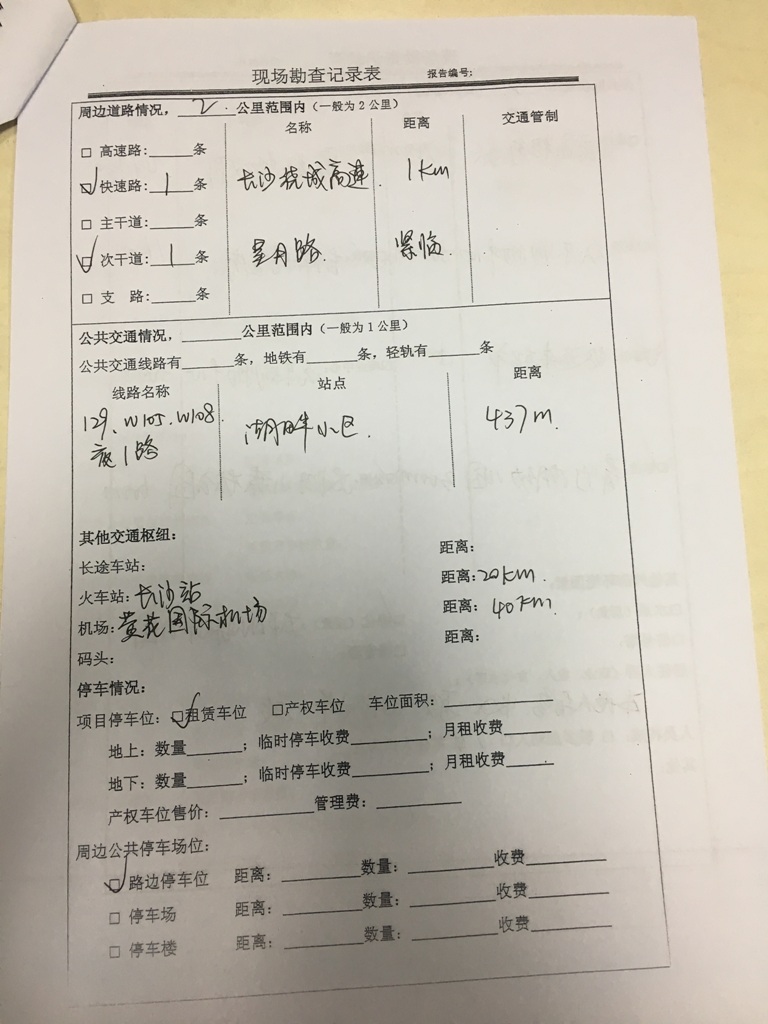 现场勘查记录表 报告编号:
周边道路情况，2公里范围内（一般为2公里）
名称 距离 交通管制
□ 高速路:____条
☑ 快速路:1条 长沙绕城高速 1Km
□ 主干道:____条
☑ 次干道:1条 星月路 紧临
□ 支 路:____条
公共交通情况，______公里范围内（一般为1公里）
公共交通线路有______条，地铁有______条，轻轨有______条
线路名称 站点 距离
129、W105、W108 湖畔小区 437m
1路
其他交通枢纽:
长途车站: 距离:
火车站:长沙站 距离:20km
机场:黄花国际机场 距离:40km
码头: 距离:
停车情况:
项目停车位: ☑租赁车位 □产权车位 车位面积:________
地上: 数量______; 临时停车收费________; 月租收费______
地下: 数量______; 临时停车收费________; 月租收费______
产权车位售价:________管理费:________
周边公共停车场位:
☑ 路边停车位 距离:________数量:________收费________
□ 停车场 距离:________数量:________收费________
□ 停车楼 距离:________数量:________收费________